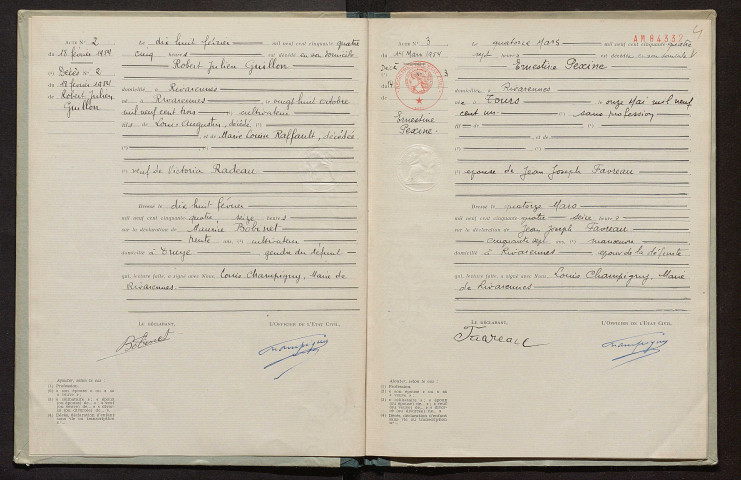 Acte N° 2
du 18 février 1954
Décès N° 2
18 février 1954
de Robert Julien
Guillon
Le dix huit février mil neuf cent cinquante quatre
cinq heures est décédé en son domicile
Robert Julien Guillon
domicilié à Rivarennes
né à Rivarennes le vingt huit octobre
mil neuf cent trois cultivateur
fils de Louis Augustin, décédé
et de Marie Louise Raffault, décédée
veuf de Victoria Radeau
Dressé le dix huit février
mil neuf cent cinquante quatre, seize heures
sur la déclaration de Maurice Bobinet
trente ans cultivateur
domicilié à gendre du défunt
qui, lecture faite, a signé avec Nous, Louis Champigny, Maire de
Rivarennes
Le Déclarant, L'Officier de l'État Civil,
Bobinet Champigny
Annoter selon le cas :
(1) Profession.
Acte N° 3
du 14 Mars 1954
Décès
3
de
Ernestine
Pexine
AM84332
Le quatorze Mars mil neuf cent cinquante quatre
sept heures est décédée en son domicile
Ernestine Pexine
domiciliée à Rivarennes
née à Tours le onze Mai mil neuf
cent un sans profession
et de
épouse de Jean Joseph Favreau
Dressé le quatorze Mars
mil neuf cent cinquante quatre seize heures
sur la déclaration de Jean Joseph Favreau
cinquante sept ans manœuvre
domicilié à Rivarennes époux de la défunte
qui, lecture faite, a signé avec Nous, Louis Champigny, Maire
de Rivarennes
Le Déclarant, L'Officier de l'État Civil,
Favreau Champigny
Annoter selon le cas :
(1) Profession.